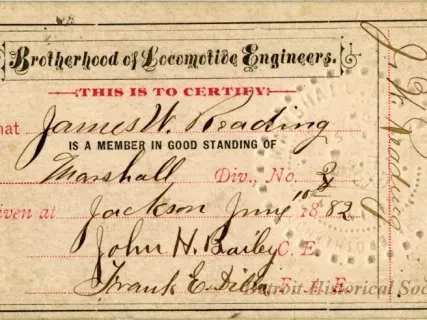 Brotherhood of Locomotive Engineers.
THIS IS TO CERTIFY:
hat James W. Reading
IS A MEMBER IN GOOD STANDING OF
Marshall Div., No. 
iven at Jackson 10 1882
John H. Bailey C. E.
Frank E. Dilla F. A. E.
J W Reading
Detroit Historical Soc